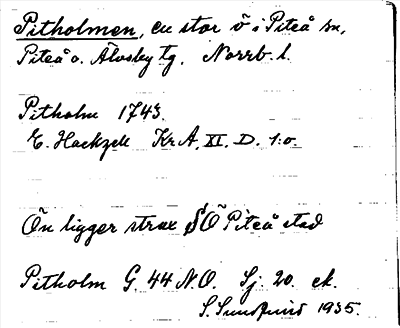 Pitholmen, en stor ö i Piteå sn,
Piteå o. Älvsby tg. Norrb. l.
Pitholm 1743.
E. Hackzell KrA. XI. D. 1:o.
Ön ligger strax SO Piteå stad
Pitholm G. 44 N.O. Sj. 20. ek.
S. Sundqvist 1935.